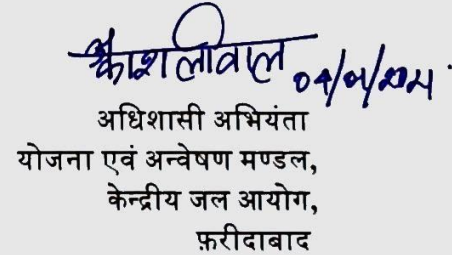 काशलीवाल 04/01/2021
अधिशासी अभियंता
योजना एवं अन्वेषण मण्डल,
केन्द्रीय जल आयोग,
फ़रीदाबाद